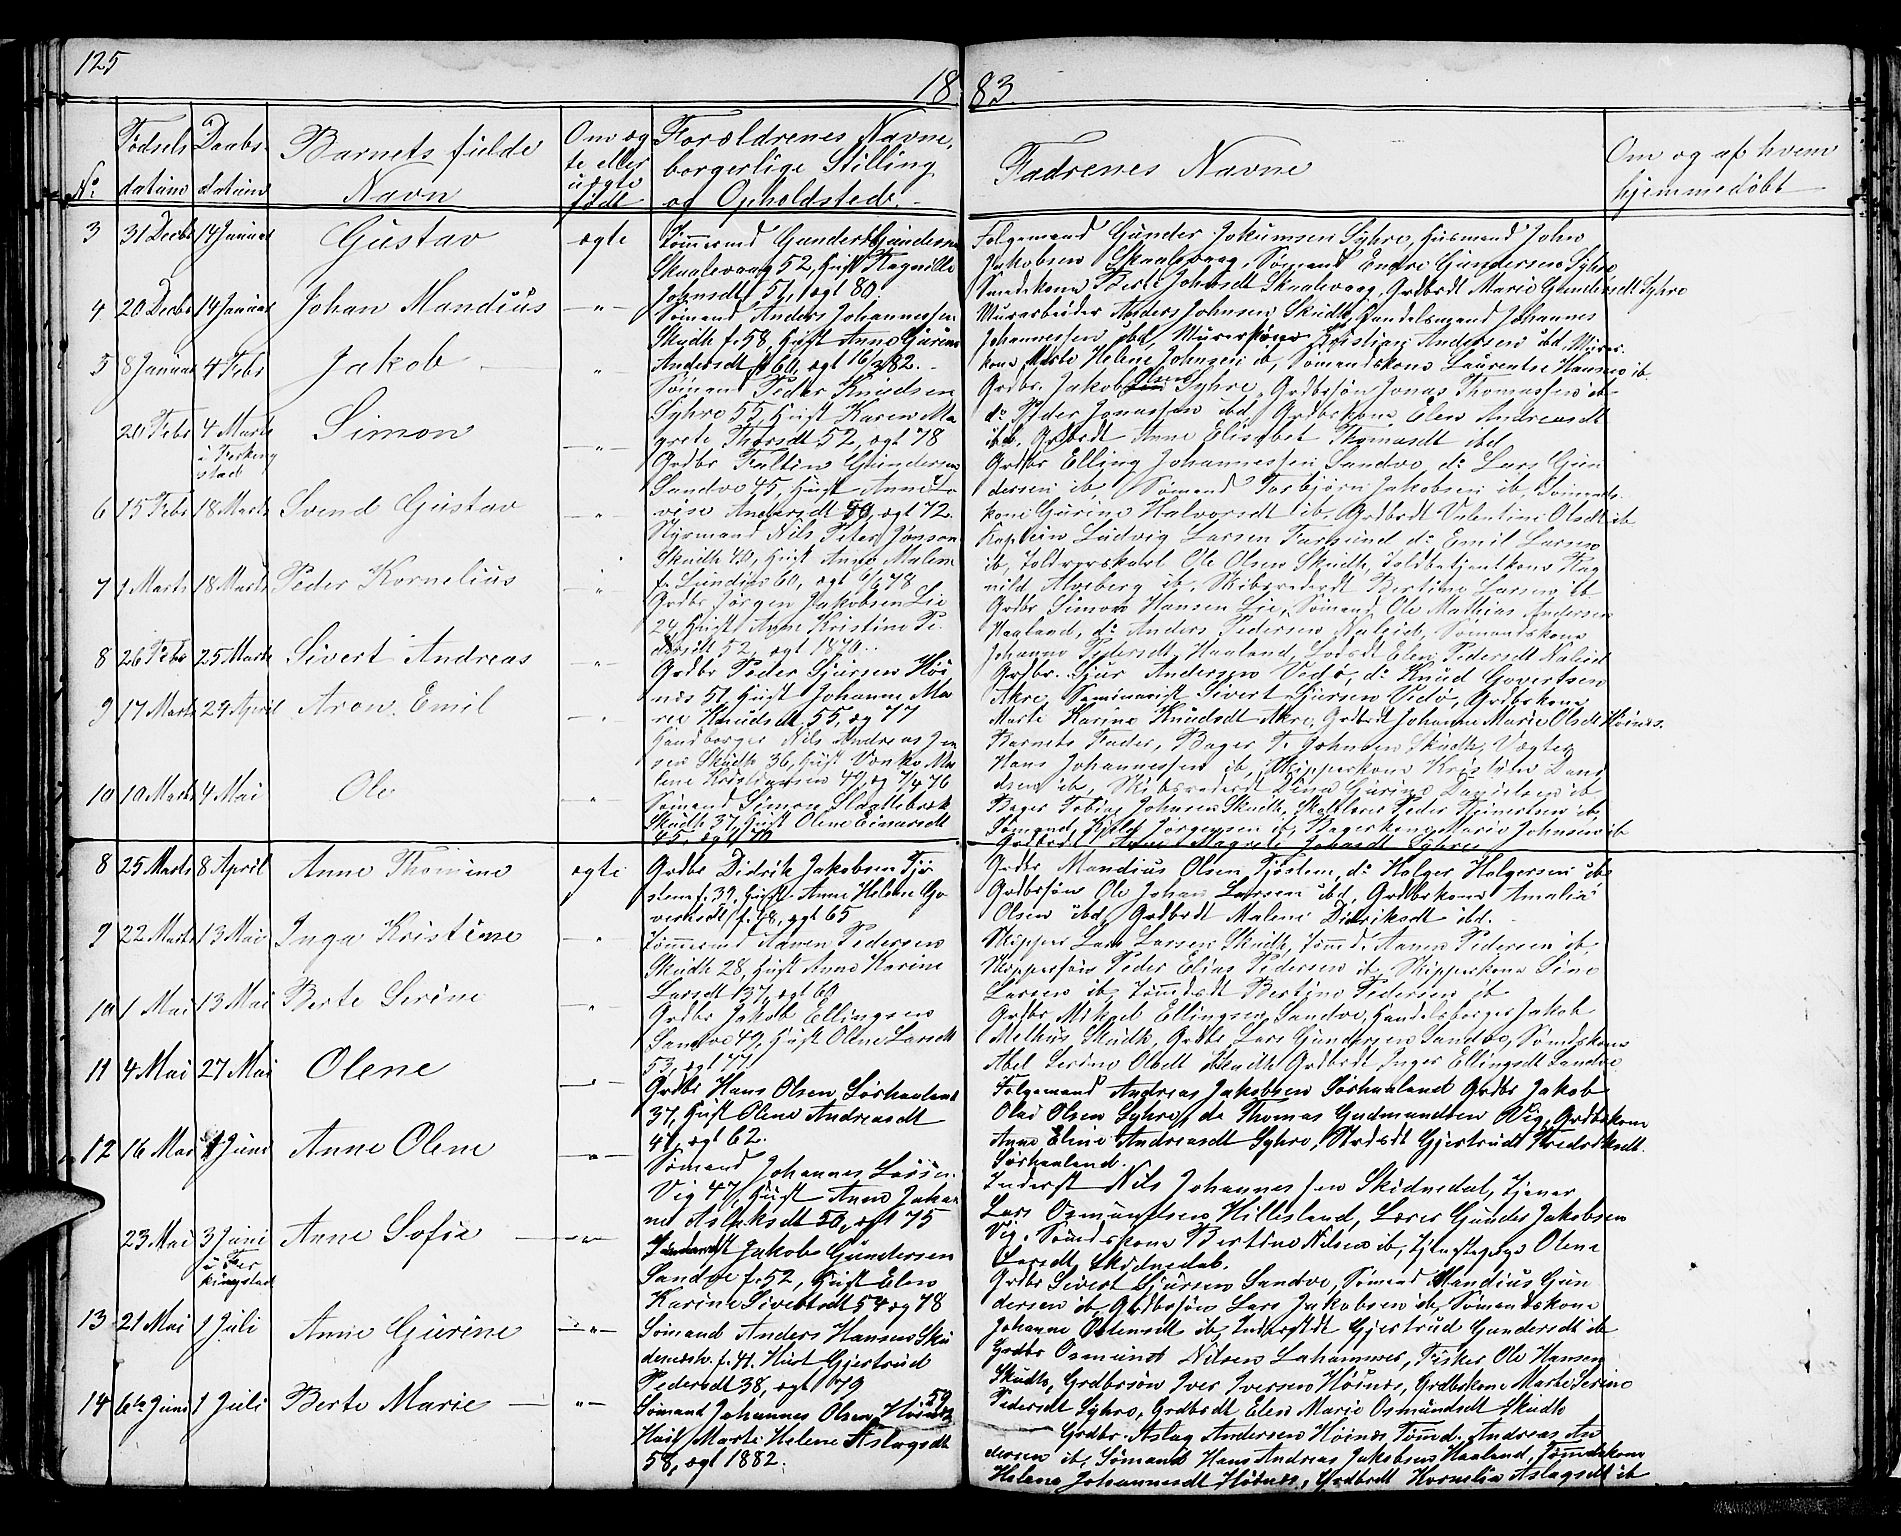 125
18 83.
No:
Fødsels datum
Daabs datum
Barnets fulde Navn
Om ægte eller uægte født
Forældrenes Navne, borgerlige Stilling og Opholdsted.
Fadrenes Navne
Om og af hvem hjemmedøbt
3 31 Decbr 14 Januar Gustav ægte
Gunder Gundersen
Skaalevaag 52, Hust Ragnille
Johnsdt 51, ægt 80
Gunder Jokumsen Syhre, Husmand John
Jakobsen Skaalevaag, Sømand Endre Gundersen Syhre
Johnsdt Skaalevaag, Grdbrdt Marie Gundersdt Syhre
4 20 Decbr 14 Januar Johan Mandius -"-
Sømand Anders Johannessen
Skudh f. 58, Hust Anne Gurine
Andersdt f 60, ægt 16/3 82.
Murarbeider Anders Johnsen Skudh, Handelsmand Johannes
Johannessen ibd, Kristian Andersen ibd, Murer-
kone Helene Johnsen ib, Sømandskone Laurentse Hansen ib.
5 8 Januar 4 Febr Jakob "
Sømand Peder Knudsen
Syhre 55, Hust Karen Ma
grete Thorsdt 52, ægt 78
Grdbr. Jakob Olsen Syhre, Grdbrsøn Jonas Thomassen ib
do Peder Jonassen ibd, Grdbrkone Elen Andreasdt
ibd, Grdbrdt Anne Elisabet Thomasdt ibd
20 Febr 4 Marts i Ferkingstad Simon -"-
Grdbr Faltin Gundersen
Sandve 45, Hust Anne Lo
vise Andersdt 50, ægt 72.
Grdbr Elling Johannessen Sandve, do Lars Gun
dersen ib, Sømand Torbjørn Jakobsen ib, Sømands-
kone Gurine Halvorsdt ib, Grdbrdt Valentine Olsdt ib
6 15 Febr 18 Marts Svend Gustav -"-
Styrmand Nils Peter Jonson
Skudh 40, Hust Anne Malene
f. Lundius 60, ægt 6/1 78
Kaptein Ludvig Larsen Farsund do Emil Larsen
ib, Ole Olsen Skudh, Toldbetjentkone Rag
nild Alveberg ib, Skibsrederdt Bertine Larsen ib
7 1 Marts 18 Marts Peder Kornelius -"-
Grdbr Jørgen Jakobsen Lie
24, Hust Anne Kristine Pe
dersdt 52, ægt 1876.
Grdbr Simon Hansen Lie, Sømand Ole Mathias Andersen
Haaland, do Anders Pedersen Naleid, Sømandskone
Johanne Pedersdt Haaland, Elen Pedersdt Naleid
8 26 Febr 25 Marts Sivert Andreas -"-
Grdbr Peder Sjursen Høi
næs 51, Hust Johanne Ma
rie Knudsdt 55, æg 77
Grdbr. Sjur Andersen Vedø, do Knud Govertsen
Akre, Seminarist Sivert Sjursen Vedø, Grdbrkone
Marte Karine Knudsdt Akre, Grdbrdt Johanne Marie Olsdt Høinæs.
9 17 Marts 29 April Aron Emil -"-
Handborger Nils Andreas Jen
sen Skudh 36, Hust Venke Ma
lene Kristiansen 49, æg 7/4 76
Barnets Fader, Bager T. Johnsen Skudh, Vægter
Hans Johannessen ib, Skipperkone Kristine Dani
elsen ib, Skibsrederdt Gurine Danielsen ib
10 10 Marts 4 Mai Ole -"-
Sømand Simon Slottebrek
Skudh 37, Hust Olene Einarsdt
45, ægt 70
Bager Tobias Johnsen Skudh, Peder ib
Sømand Jørgensen ib, Bagerkone Marie Johnsen ib
Grdbrdt Anne Magrete Johnsdt Syhre
8 25 Marts 8 April Anne Thomine ægte
Grdbr Didrik Jakobsen Tjø
stem f. 39, Hust Anne Helene Go
vertsdt f. 48, ægt 65
Grdbr Mandius Olsen Tjøstem, do Holger Holgersen ibd
Grdbrsøn Ole Johan Larsen ibd, Grdbrkone Amalia
Olsen ibd, Grdbrdt Malene Didriksdt ibd.
9 22 Marts 13 Mai Inga Kristine -"-
Tømmermd Aanen Pedersen
Skudh 28, Hust Anne Karine
Larsdt 37, ægt 60
Skipper Lars Larsen Skudh, Tømd. Aanen Pedersen ib,
Skippersøn Peder Elias Pedersen ib, Skipperkone Sine
Larsen ib, Bertine Pedersen ib
10 1 Mai 13 Mai Berte Serine "
Grdbr Jakob Ellingsen
Sandve 49, Hust Olene Larsdt
53, ægt 77
Grdbr Mikael Ellingsen Sandve, Handelsborger Jakob
Melhus Skudh, Grdbr Lars Gundersen Sandve, Sømdskone
Abel Serine Olsdt Skudh Grdbrdt Inger Ellingsdt Sandve
11 4 Mai 27 Mai Olene -"-
Grdbr Hans Olsen Sørhaaland
37, Hust Olene Andreasdt
41, ægt 62.
Følgemand Andreas Jakobsen Sørhaaland Grdbr Jakob
Olai Olsen Syhre, do Thomas Gudmundsen Vig, Grdbrkone
Anne Eline Andreasdt Syhre, Grdbrdt Gjertrud Fredriksdt
Sørhaaland.
12 16 Mai 1 Juni Anne Olene -"-
Sømand Johannes Larsen
Vig 47, Hust Anne Johan
ne Aslaksdt 50, ægt 75
Inderst Nils Johannessen Skidnedal, Tjener
Lars Osmundsen Hillesland, Lærer Gunder Jakobsen
Vig, Sømdskone Bertine Nilsen ib, Tjenestepige Olene
Larsdt Skidnedal.
23 Mai 3 Juni i Ferkingstad Anne Sofie -"-
Jakob Gundersen
Sandve f. 52, Hust Elen
Karine Sivertsdt 54 æg 78
Grdbr Sivert Sjursen Sandve, Sømand Mandius Gun
dersen ib, Grdbrsøn Lars Jakobsen ib, Sømandskone
Johanne Ostensdt ib, Inderstdt Gjertrud Gundersdt ib
13 21 Mai 1 Juli Anne Gurine -"-
Sømand Anders Hansen Sku
denesh. f. 41. Hust Gjertrud
Pedersdt 38, ægt 79
Grdbr Osmund Nilsen Lahammer, Fisker Ole Hansen
Skudh, Grdbrsøn Iver Iversen Høinæs, Grdbrkone Marte Serine
Pedersdt Syhre, Grdbrdt Elen Marie Osmundsdt Skudh
14 6te Juni 1 Juli Berte Marie "-
Sømand Johannes Olsen Høinæs 59
Hust Marte Helene Aslagsdt
58, ægt 1882.
Grdbr. Aslag Andersen Høinæs Tømd. Andreas An
dersen ib, Sømand Hans Andreas Jakobsen Haaland, Tømdskone
Helene Johannesdt Høinæs, Grdbrdt Kornelia Aslagsdt ib